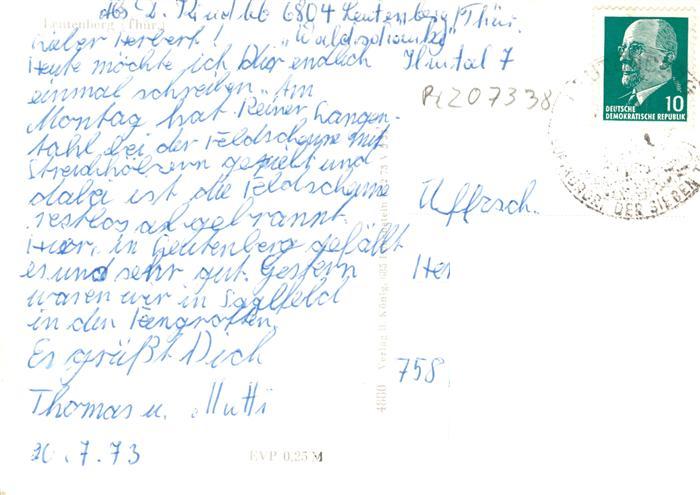 Abs D. Kindleb 6804 Leutenberg/Thür.
Leutenberg (Thür.)
Lieber Herbert! „Waldschänke"
Heute möchte ich Dir endlich Ilmtal 7
einmal schreiben. Am
Montag hat Reiner Langen-
stahl bei der Feldscheune mit
Streichhölzern gezielt und
dabei ist die Feldscheune
restlos abgebrannt.
Hier in Leutenberg gefällt
es und sehr gut. Gestern
waren wir in Saalfeld
in den Feengrotten.
Es grüßt Dich
Thomas u. Mutti
.7.73
EVP 0,25 M
4880 Verlag R. König, 685
PZ 207338
Uffzsch.
Her
758
10
DEUTSCHE
DEMOKRATISCHE REPUBLIK
DER